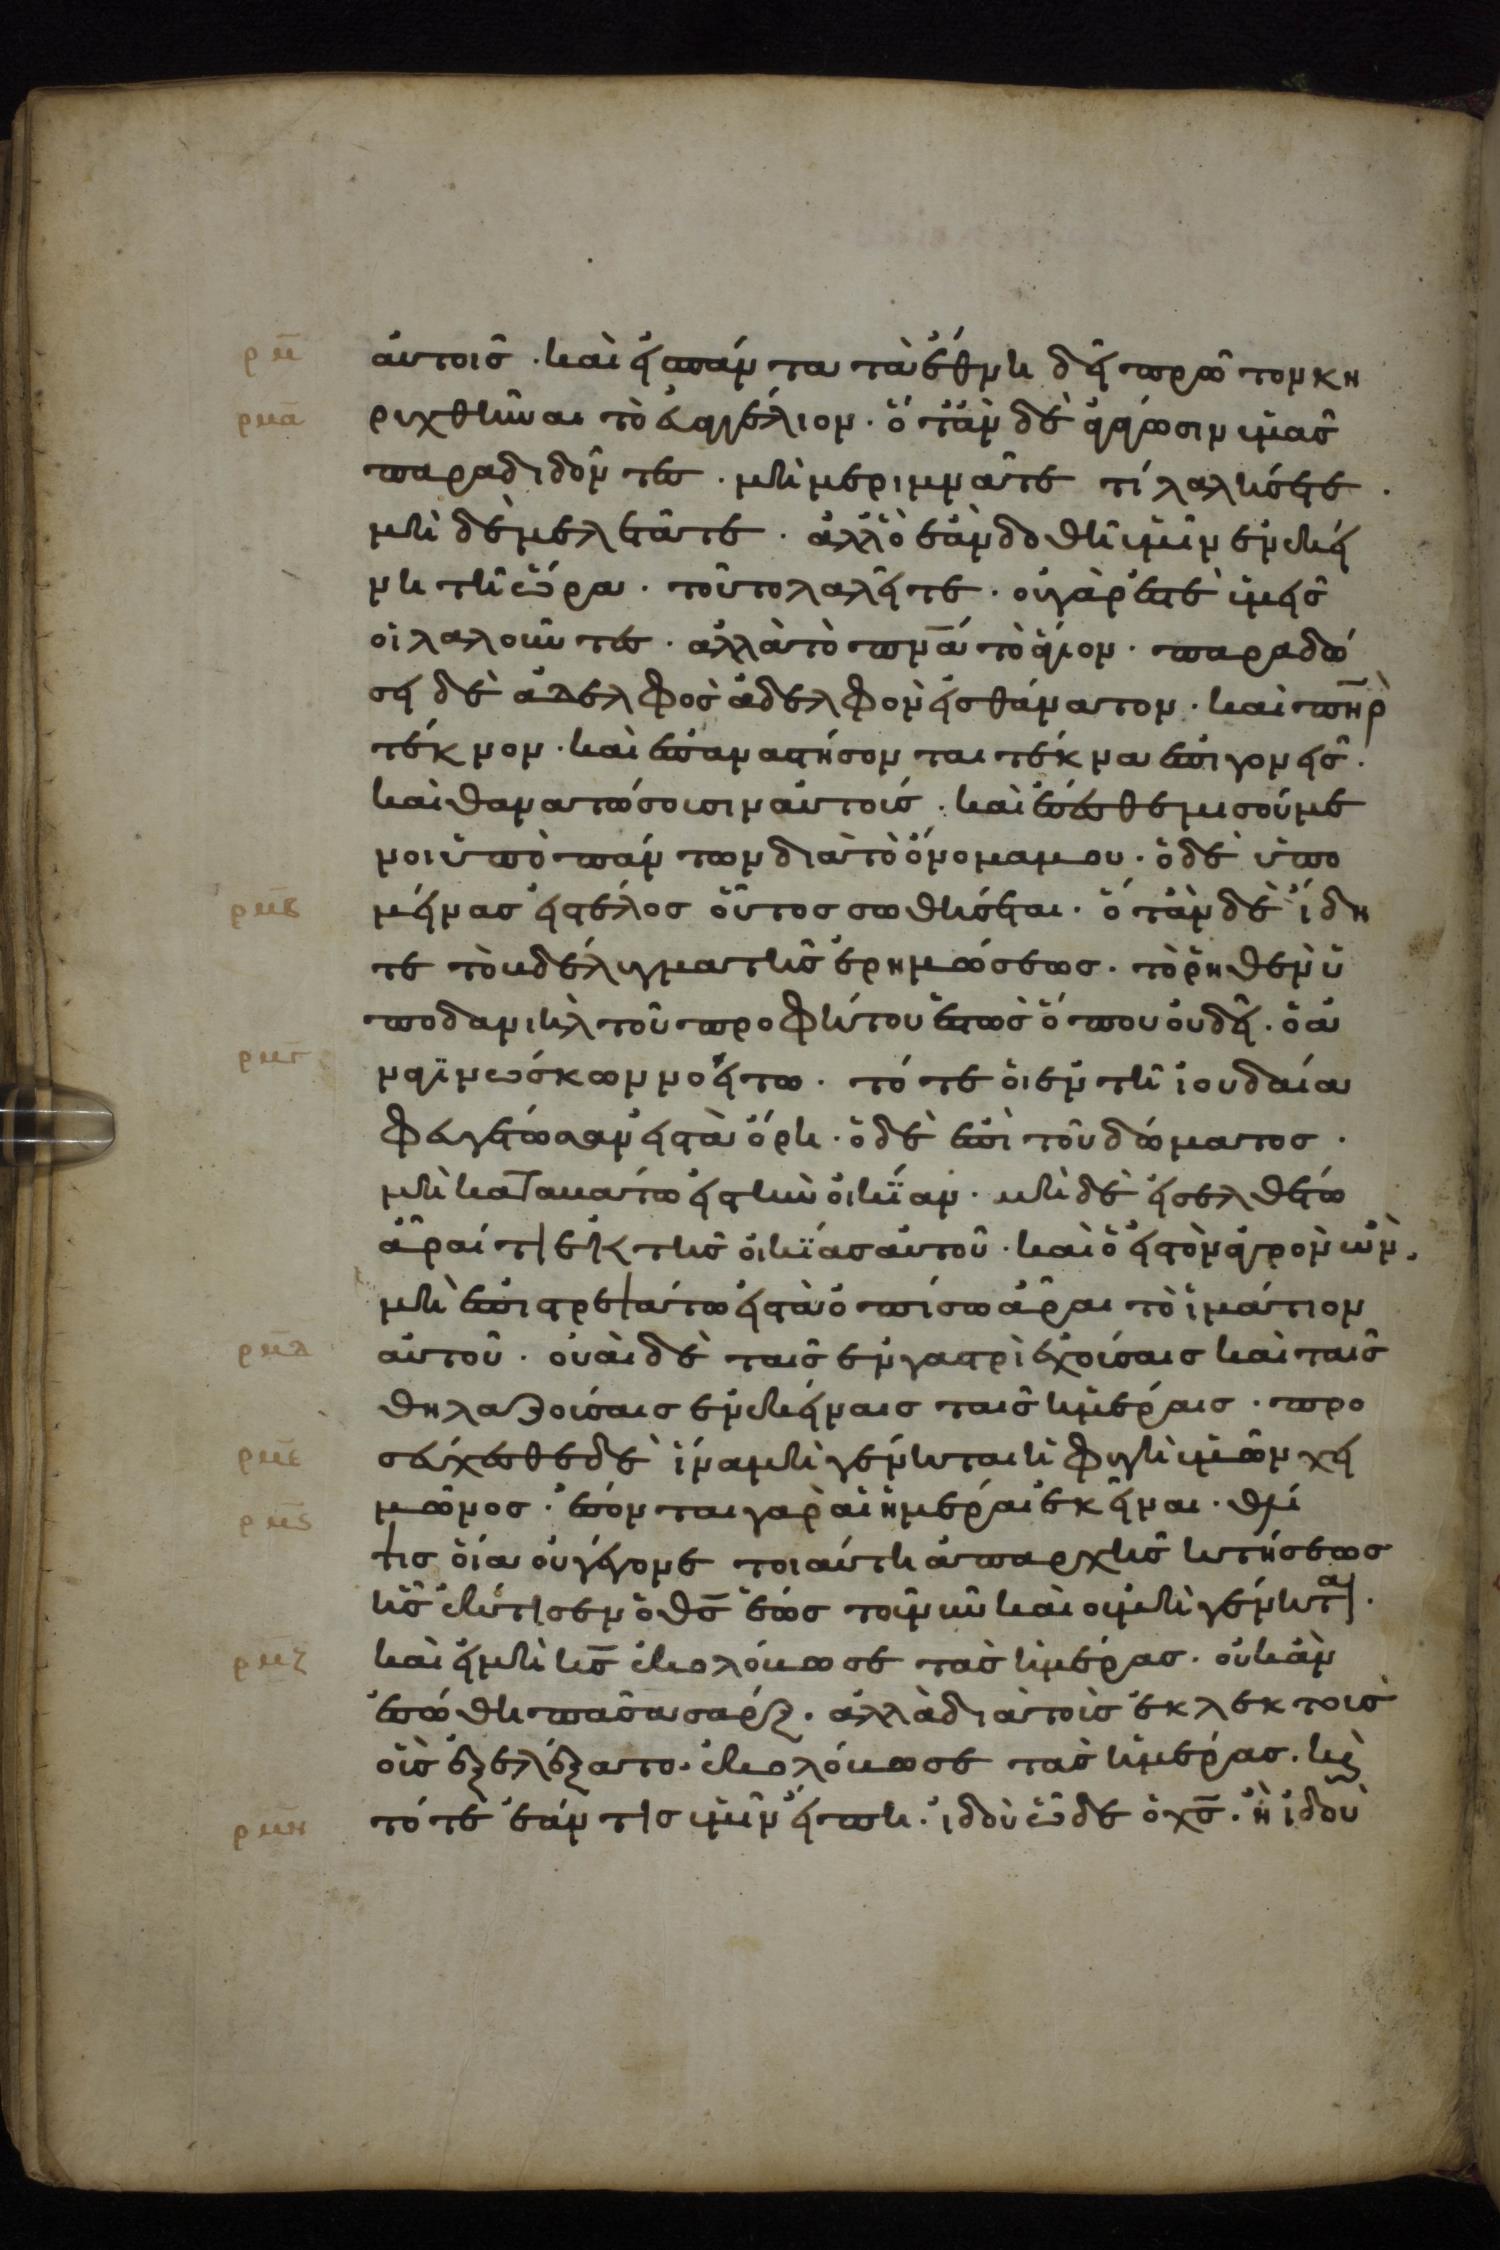 ρμ̅ αὐτοῖς · καὶ εἰς πάντα τὰ ἔθνη δεῖ πρῶτον κη
ρμα̅ ρυχθῆναι τὸ εὐαγγέλιον · ὅταν δὲ ἀγάγωσιν ὑμᾶς
παραδιδόντες · μὴ μεριμνᾶτε τί λαλήσητε ·
μὴ δὲ μελετᾶτε · ἀλλ' ὃ ἐὰν δοθῆ ὑμῖν ἐν ἐκεί
νη τῆ ὥρα · τοῦτο λαλεῖτε · οὐ γάρ ἐστὲ ὑμεῖς
οἱ λαλοῦντες · ἀλλὰ τὸ πν̅α τὸ ἅγιον · παραδώ
σει δὲ ἀδελφὸς ἀδελφὸν εἰς θάνατον · καὶ πη̅ρ
τέκνον · καὶ ἐπαναστήσονται τέκνα ἐπὶ γονεῖς ·
καὶ θανατώσουσιν αὐτούς · καὶ ἔσεσθε μισούμε
νοι ὑπὸ πάντων διὰ τὸ ὄνομα μου · ὁ δὲ ὑπο
ρμβ̅ μείνας εἰς τέλος οὗτος σωθήσεται · ὅταν δὲ ἴδη
τε τὸ βδέλυγμα τῆς ἐρημώσεως · τὸ ῥηθὲν ὑ
πο δανιὴλ τοῦ προφήτου ἑστὼς ὅπου οὐ δεῖ · ὁ ἀ
ρμγ̅ ναγινώσκων νοείτω · τότε οἱ ἐν τῆ ἰουδαία
φευγέτωσαν εἰς τὰ ὄρη · ὁ δὲ ἐπὶ τοῦ δώματος ·
μὴ καταβάτω εἰς τὴν οἰκίαν · μὴ δὲ εἰσελθέτω
ἆραί τι ἐκ τῆς οἰκίας αὐτοῦ · καὶ ὁ εἰς τὸν ἀγρὸν ὢν ·
μὴ ἐπιστρεψάτω εἰς τὰ ὀπίσω ἆραι τὸ ἱμάτιον
ρμδ̅ αὐτοῦ · οὐαὶ δὲ ταῖς ἐν γαστρὶ ἐχούσαις καὶ ταῖς
θηλαζούσαις ἐν ἐκείναις ταῖς ἡμέραις · προ
ρμε̅ σεύχεσθε δὲ ἵνα μὴ γένηται ἡ φυγὴ ὑμῶν χει
ρμς̅ μῶνος · ἔσονται γὰρ αἱ ἡμέραι ἐκεῖναι · θλί
ψις οἵα οὐ γέγονε τοιαύτη ἀπαρχῆς κτήσεως
ἧς ἔκτισεν ὁ θς̅ ἕως τοῦ νῦν καὶ οὐ μὴ γένηται ·
ρμζ̅ καὶ εἰ μὴ κς̅ ἐκολόβωσε τὰς ἡμέρας · οὐκ ἂν
ἐσώθη πᾶσα σάρξ · ἀλλὰ διὰ τοὺς ἐκλεκτοὺς
οὓς ἐξελέξατο · ἐκολόβωσε τὰς ἡμέρας · κ(αὶ)
ρμη̅ τότε ἐάν τις ὑμῖν εἴπη · ἰδοὺ ὧδε ὁ χς̅ · ἢ ἰδοὺ